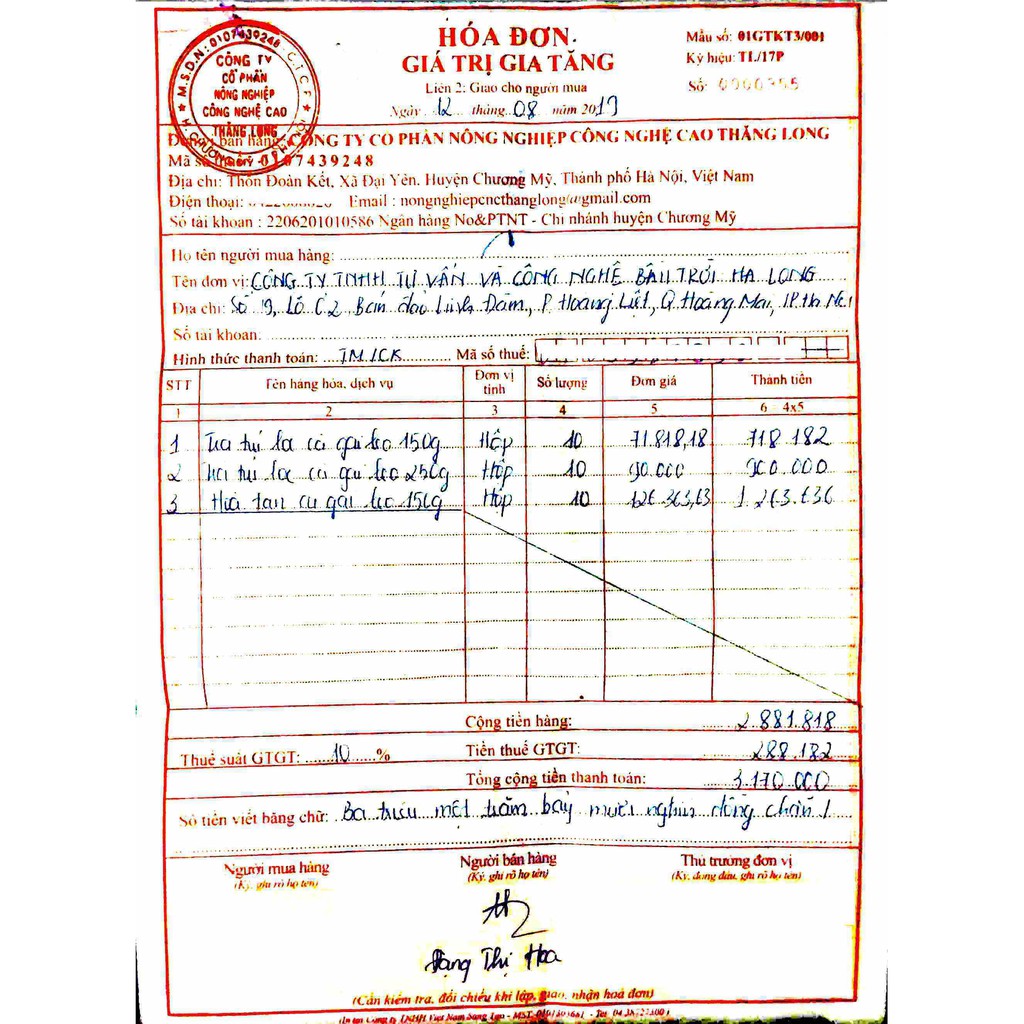 HÓA ĐƠN
GIÁ TRỊ GIA TĂNG
Liên 2: Giao cho người mua
Ngày 12 tháng 08 năm 2019
Mẫu số: 01GTKT3/001
Ký hiệu: TL/17P
Số:
M.S.D.N: 0107439248 - C.T.C.P
CÔNG TY
CỔ PHẦN
NÔNG NGHIỆP
CÔNG NGHỆ CAO
THĂNG LONG
Đơn vị bán hàng: CÔNG TY CỔ PHẦN NÔNG NGHIỆP CÔNG NGHỆ CAO THĂNG LONG
Mã số thuế: 0107439248
Địa chỉ: Thôn Đoàn Kết, Xã Đại Yên, Huyện Chương Mỹ, Thành phố Hà Nội, Việt Nam
Điện thoại: Email : nongnghiepcncthanglong@gmail.com
Số tài khoản : 2206201010586 Ngân hàng No&PTNT - Chi nhánh huyện Chương Mỹ
Họ tên người mua hàng:
Tên đơn vị: CÔNG TY TNHH TƯ VẤN VÀ CÔNG NGHỆ BẦU TRỜI HẠ LONG
Địa chỉ: Số 9, Lô C2, Bán đảo Linh Đàm, P. Hoàng Liệt, Q. Hoàng Mai, TP. Hà Nội
Số tài khoản:
Hình thức thanh toán: TM/CK Mã số thuế:
STT Tên hàng hóa, dịch vụ Đơn vị tính Số lượng Đơn giá Thành tiền
1 2 3 4 5 6 4x5
1 cà gai leo 150g Hộp 10 71.818,18 718.182
2 cà gai leo 250g Hộp 10 90.000 900.000
3 cà gai leo 150g Hộp 10 126.363,63 1.263.636
Cộng tiền hàng: 2.881.818
Thuế suất GTGT: 10 % Tiền thuế GTGT: 288.182
Tổng cộng tiền thanh toán: 3.170.000
Số tiền viết bằng chữ: Ba triệu một trăm bảy mươi nghìn đồng chẵn /
Người mua hàng Người bán hàng Thủ trưởng đơn vị
(Ký, ghi rõ họ tên) (Ký, ghi rõ họ tên) (Ký, đóng dấu, ghi rõ họ tên)
Thị Hoa
(Cần kiểm tra, đối chiếu khi lập, giao, nhận hoá đơn)